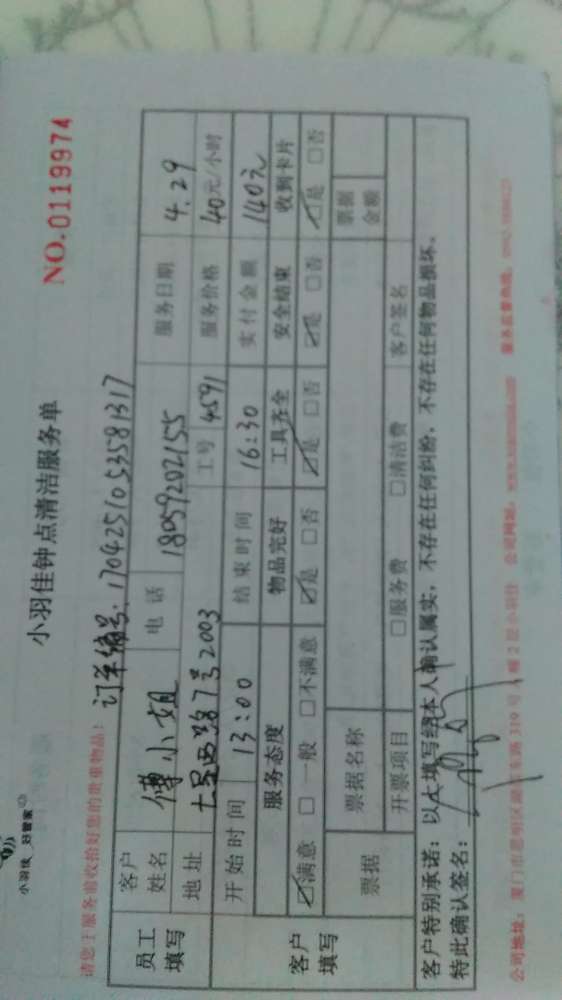 小羽佳 好管家
小羽佳钟点清洁服务单
NO.01199974
请您于服务前收拾好您的贵重物品!
订单编号:1704251053581317
员工填写
客户姓名 傅小姐 电话 18059202155 服务日期 4.29
地址 七星西路7号2003 工号 4591 服务价格 40元/小时
开始时间 13:00 结束时间 16:30 实付金额 140元
客户填写
服务态度 物品完好 工具齐全 安全结束 收到卡片
☑满意 □一般 □不满意 ☑是 □否 ☑是 □否 ☑是 □否 ☑是 □否
票据 票据名称 票据金额
开票项目 □服务费 □清洁费 客户签名
客户特别承诺:以上填写经本人确认属实,不存在任何纠纷,不存在任何物品损坏。
特此确认签名:
公司地址:厦门市思明区 319号 2层小羽佳 公司网址: 服务监督热线: